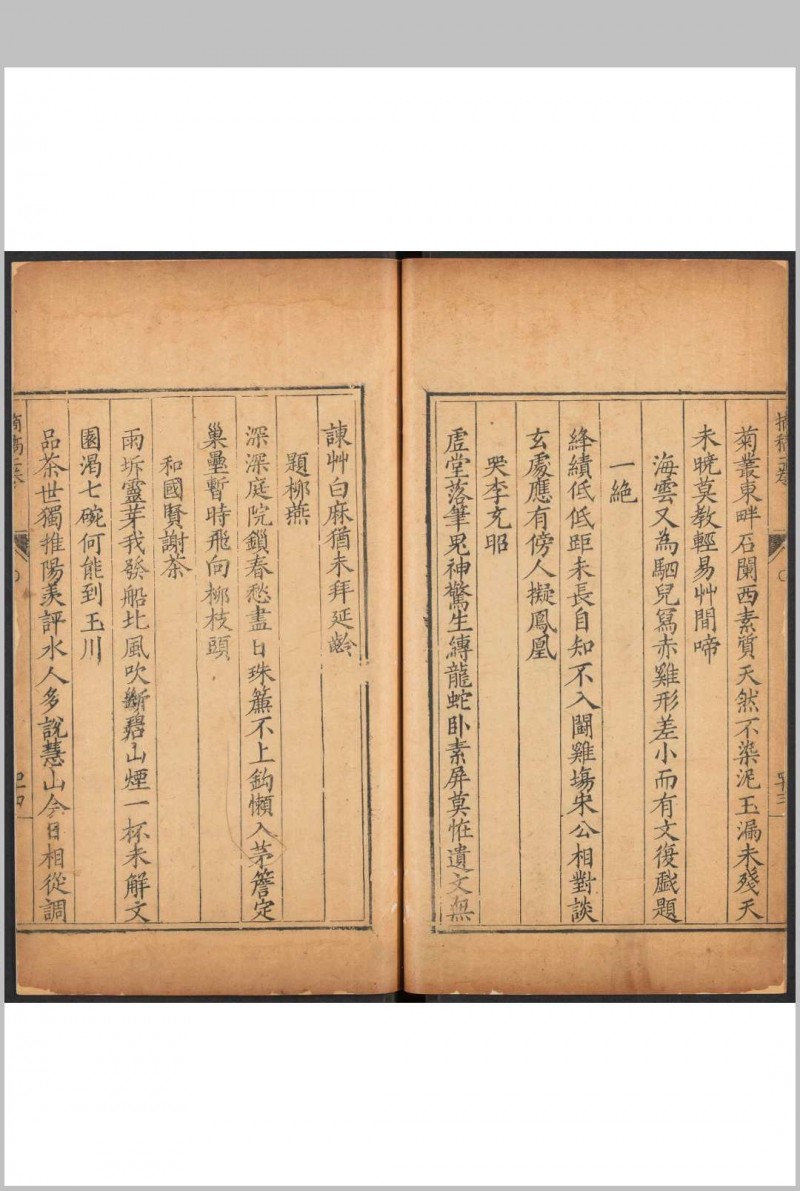 菊叢東畔石闌西素質天然不染泥玉漏未殘天
未曉莫教輕易艸間啼
海雲又為駟兒寫赤雞形差小而有文復戲題
一絶
絳績低低距未長自知不入鬪雞塲宋公相對談
玄處應有傍人擬鳳凰
哭李充昭
虛堂落筆鬼神驚生縳龍蛇卧素屏莫恠遺文無
諫艸白麻猶未拜延齡
題柳燕
深深庭院鎖春愁盡日珠簾不上鈎懶入茅簷定
巢壘暫時飛向柳枝頭
和國賢謝茶
雨坼靈芽我發船北風吹斷碧山煙一杯未解文
園渴七碗何能到玉川
品茶世獨推陽羨評水人多說慧山今日相從調